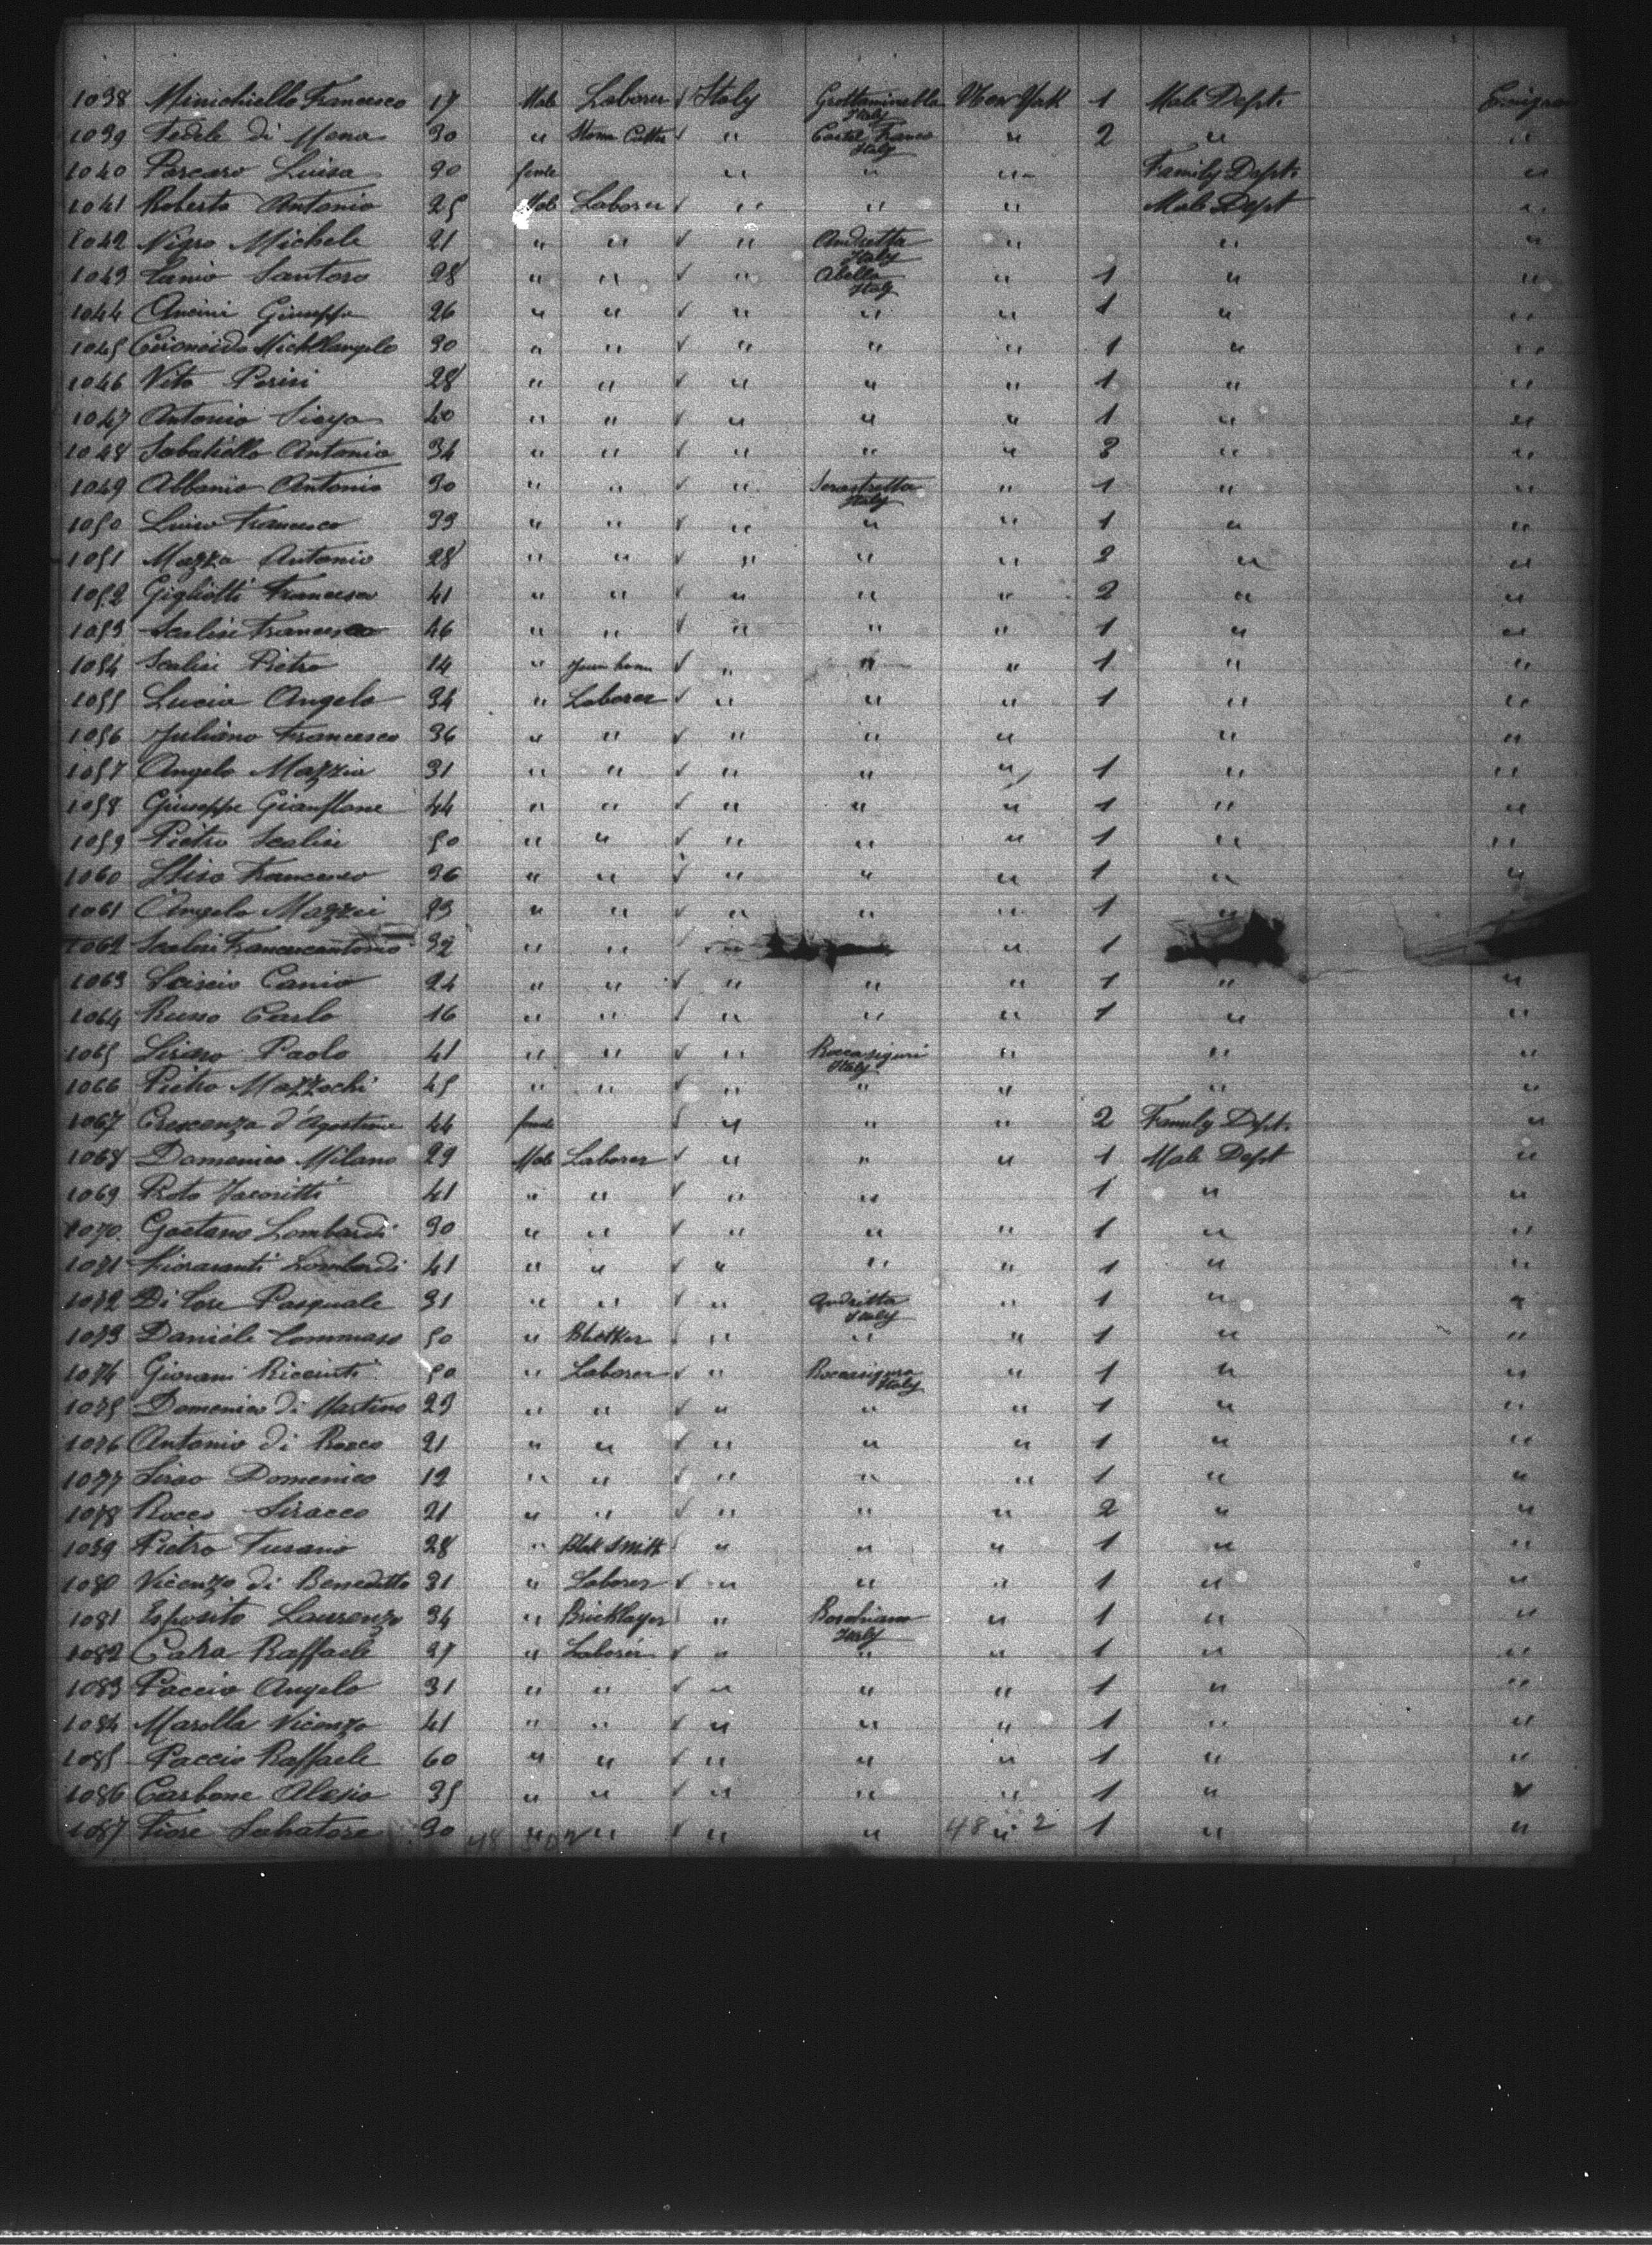 1038 Minichiello Francesco 17 Male Laborer √ Italy Grottaminella Italy New York 1 Male Dept. Emigran
1039 Fedele di Mona 30 " Stone Cutter √ " Castel Franco Italy " 2 " "
1040 Porcaro Luisa 30 female " " " Family Dept. "
1041 Roberto Antonio 25 Male Laborer √ " " " Male Dept "
1042 Nigro Michele 21 " " √ " Andretta Italy " " "
1043 Canio Santoro 28 " " √ " Abella Italy " 1 " "
1044 Ancini Giuseppe 26 " " √ " " " 1 " "
1045 Michellangelo 30 " " √ " " " 1 " "
1046 Vito Parisi 28 " " √ " " " 1 " "
1047 Antonio 40 " " √ " " " 1 " "
1048 Sabatiello Antonio 34 " " √ " " " 3 " "
1049 Abbonio Antonio 30 " " √ " Serrastretta Italy " 1 " "
1050 Francesco 33 " " √ " " " 1 " "
1051 Mazza Antonio 28 " " √ " " " 2 " "
1052 Gigliotti Francesco 41 " " √ " " " 2 " "
1053 Scalisi Francesco 46 " " √ " " " 1 " "
1054 Scalisi Pietro 14 " √ " " " 1 " "
1055 Lucia Angelo 34 " Laborer √ " " " 1 " "
1056 Juliano Francesco 36 " " √ " " " " "
1057 Angelo Mazzia 31 " " √ " " " 1 " "
1058 Giuseppe Gianflone 44 " " √ " " " 1 " "
1059 Pietro Scalisi 50 " " √ " " " 1 " "
1060 Francesco 36 " " √ " " " 1 " "
1061 Angelo Mazzei 23 " " √ " " " 1 "
1062 Scalisi Francescantonio 32 " " √ " " 1
1063 Sciscio Canio 24 " " √ " " " 1 " "
1064 Russo Carlo 16 " " √ " " " 1 " "
1065 Paolo 41 " " √ " Roccasiguri Italy " " "
1066 Pietro Mazzochi 45 " " √ " " " " "
1067 Crescenza d'Agostino 44 female √ " " " 2 Family Dept. "
1068 Domenico Milano 29 Male Laborer √ " " " 1 Male Dept "
1069 Proto Jacovitti 41 " " √ " " 1 " "
1070 Gaetano Lombardi 30 " " √ " " " 1 " "
1071 Fioravanti Lombardi 41 " " √ " " " 1 " "
1072 Di Cose Pasquale 31 " " √ " Andretta Italy " 1 " "
1073 Daniele Tommaso 50 " √ " " " 1 " "
1074 Giovani Ricciuti 50 " Laborer √ " Roccasigura Italy " 1 " "
1075 Domenico di Martino 23 " " √ " " " 1 " "
1076 Antonio di Rocco 21 " " √ " " " 1 " "
1077 Domenico 12 " " √ " " " 1 " "
1078 Rocco Siracco 21 " " √ " " " 2 " "
1079 Pietro Fusano 28 " Blak Smith √ " " " 1 " "
1080 Vicenzo di Benedetto 31 " Laborer √ " " " 1 " "
1081 Esposito Laurenzo 34 " Bricklayer " Italy " 1 " "
1082 Raffaele 37 " Laborer √ " " " 1 " "
1083 Paccio Angelo 31 " " √ " " " 1 " "
1084 Marolla Vicenzo 41 " " √ " " " 1 " "
1085 Paccio Raffaele 60 " " √ " " " 1 " "
1086 Carbone Alesio 35 " " √ " " " 1 " "
1087 Fiore Salvatore 30 " " √ " " " 1 " "
48 2